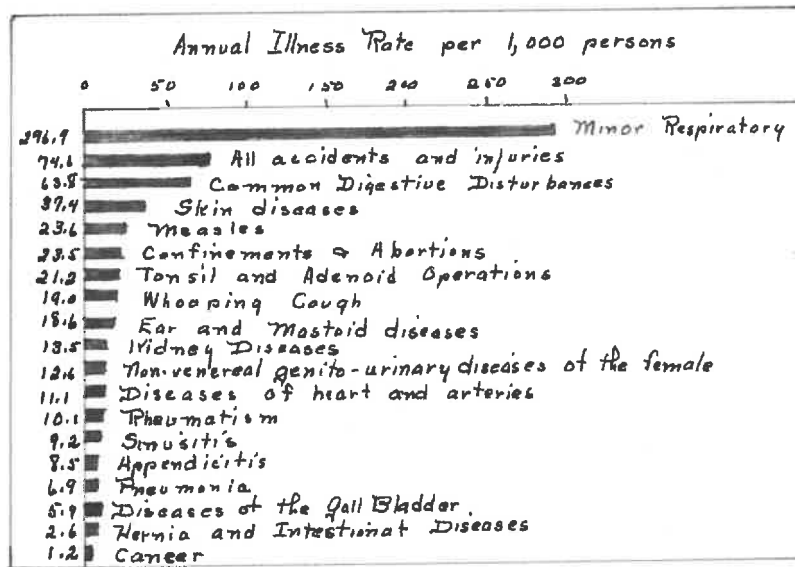 Annual Illness Rate per 1,000 persons
0 50 100 150 200 250 300
296.9 Minor Respiratory
74.6 All accidents and injuries
63.8 Common Digestive Disturbances
37.4 Skin diseases
23.6 Measles
23.5 Confinements & Abortions
21.2 Tonsil and Adenoid Operations
19.0 Whooping Cough
18.6 Ear and Mastoid diseases
13.5 Kidney Diseases
12.6 Non-venereal genito-urinary diseases of the female
11.1 Diseases of heart and arteries
10.1 Rheumatism
9.2 Sinusitis
8.5 Appendicitis
6.9 Pneumonia
5.9 Diseases of the Gall Bladder.
2.6 Hernia and Intestional Diseases
1.2 Cancer